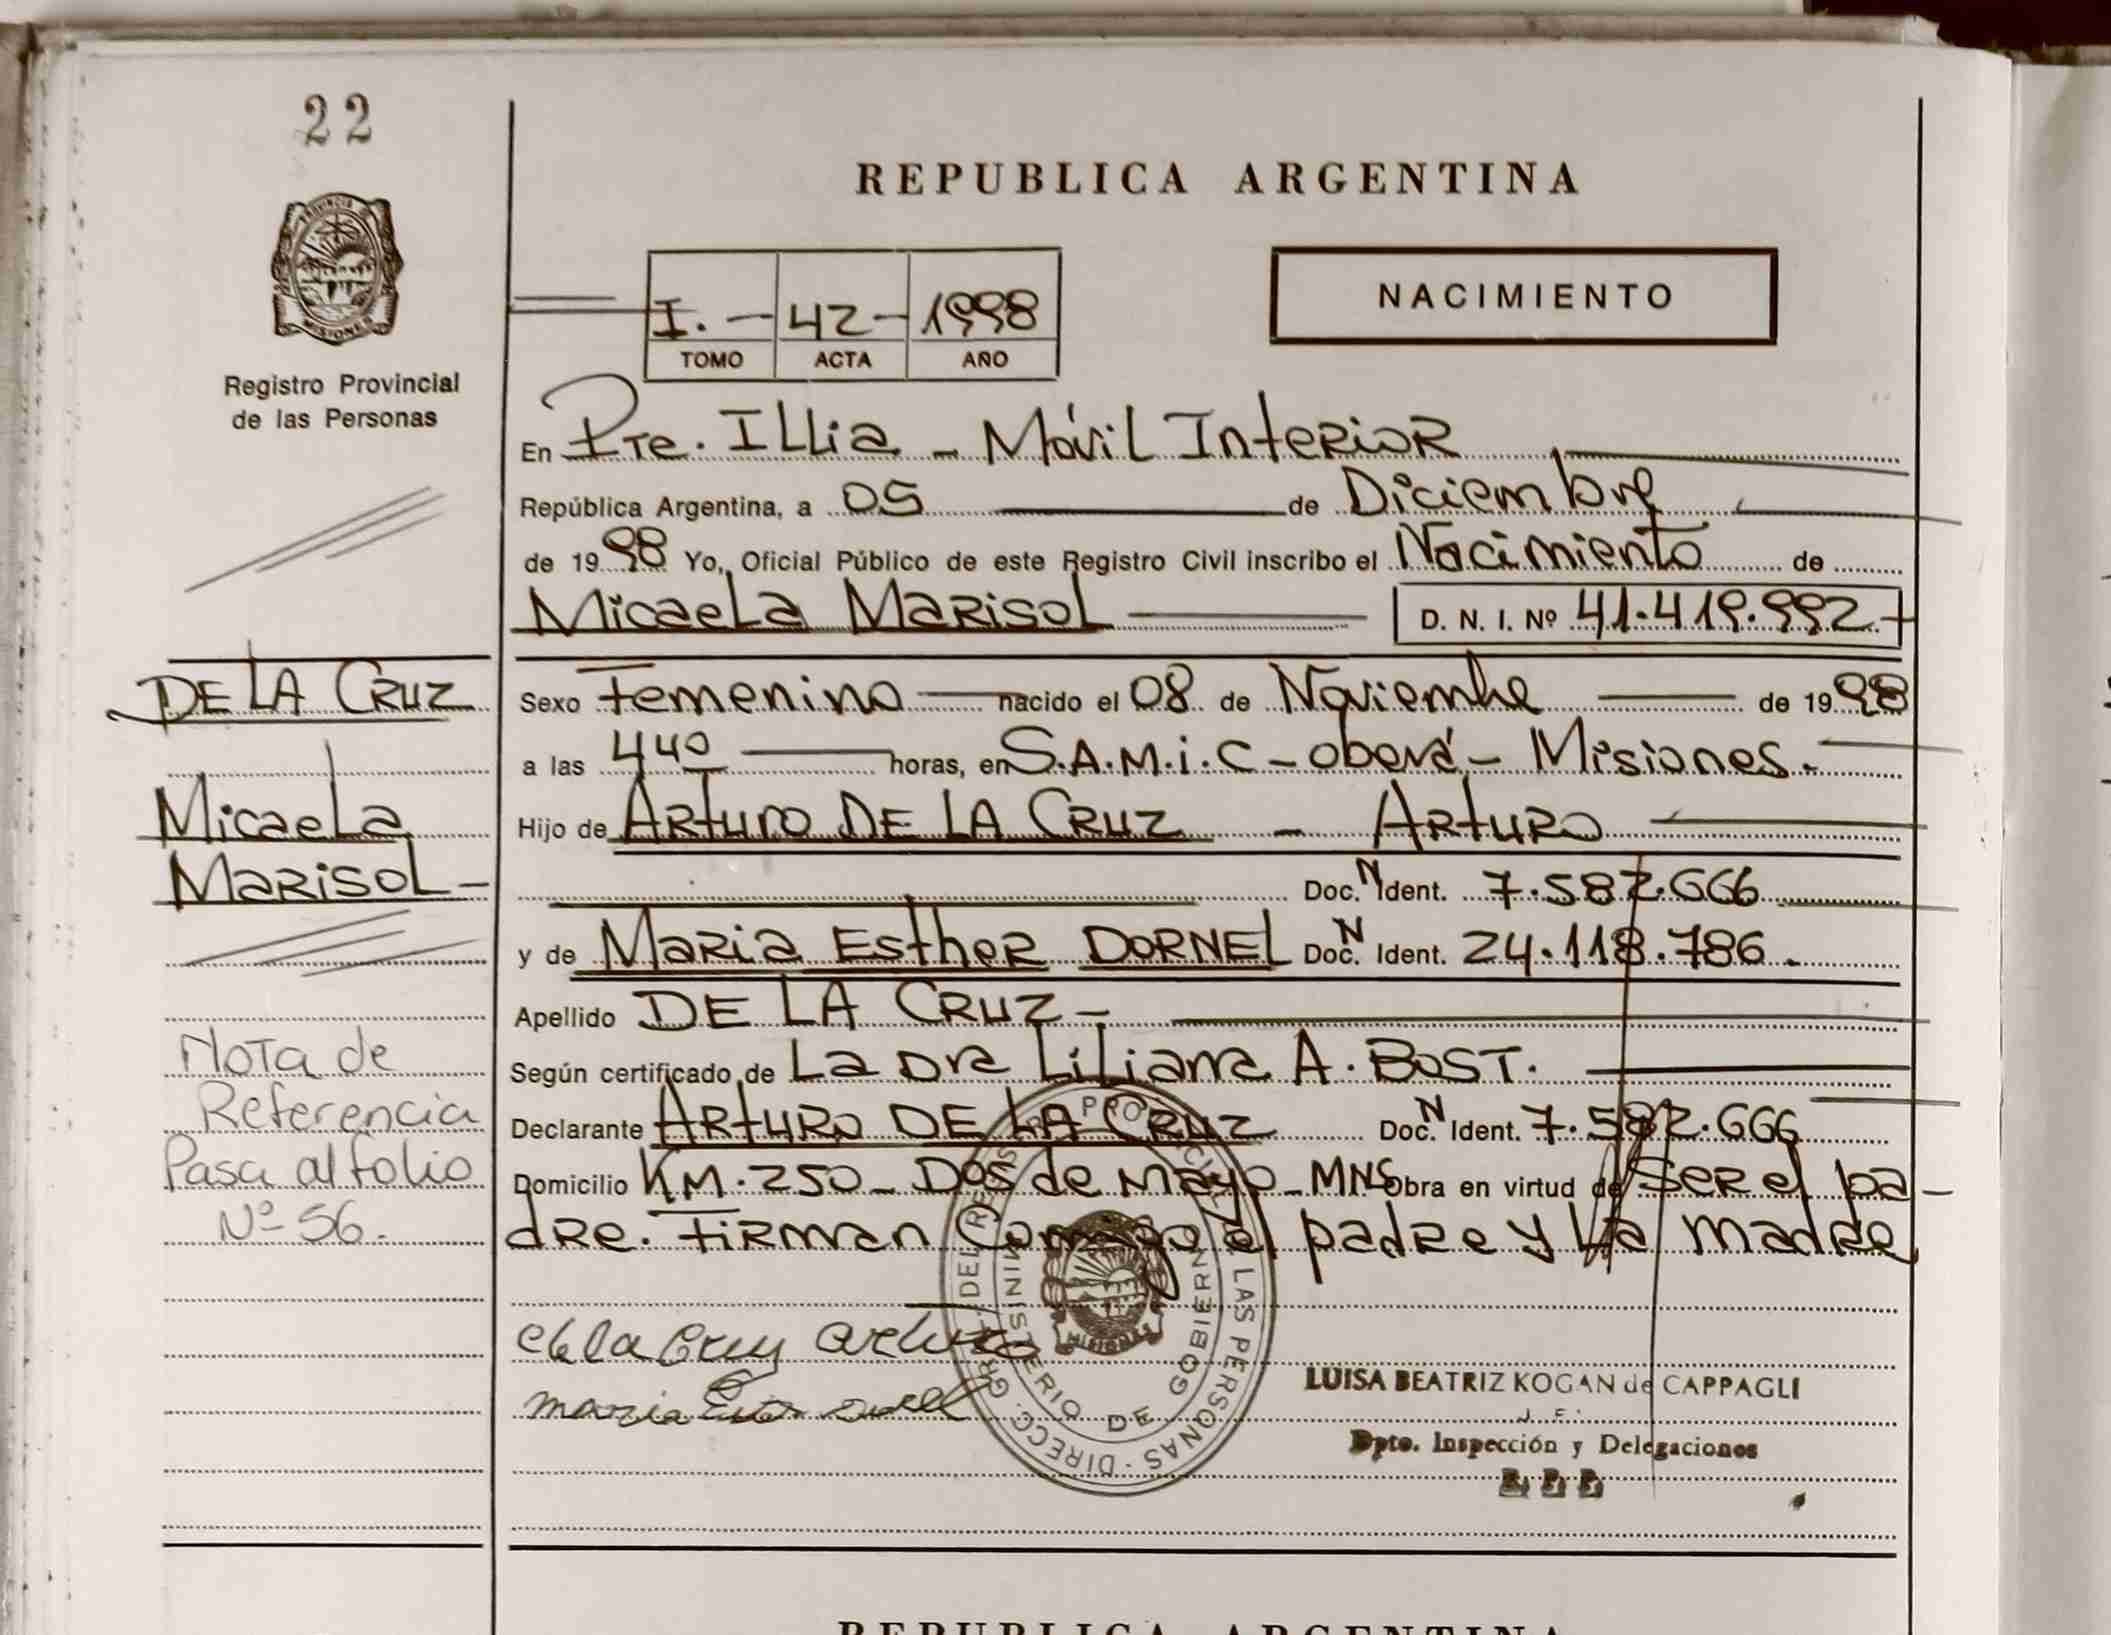 22
REPUBLICA ARGENTINA
PROVINCIA DE
MISIONES
Registro Provincial
de las Personas
I. - 42 - 1998
TOMO ACTA AÑO
NACIMIENTO
En Pte. ILLia - Móvil Interior
República Argentina, a 05 de Diciembre
de 1998 Yo, Oficial Público de este Registro Civil inscribo el Nacimiento de
Micaela Marisol D. N. I. Nº 41.419.992
DE LA CRUZ
Micaela
Marisol -
Sexo Femenino nacido el 08 de Noviembre de 1998
a las 440 horas, en S.A.M.i.C - oberá - Misiones.
Hijo de Arturo DE LA CRUZ - Arturo
Doc. N Ident. 7.582.666
y de Maria Esther DORNEL Doc. N Ident. 24.118.786.
Apellido DE LA CRUZ -
Según certificado de La Dra Liliana A. BosT.
Declarante Arturo DE LA CRUZ Doc. N Ident. 7.582.666
Domicilio KM.250 - Dos de mayo - MNS Obra en virtud de ser el pa-
dre. Firman Conmigo el padre y La madre
Nota de
Referencia
Pasa al folio
Nº 56.
de la Cruz Arturo
maria
DIRECC. GRAL. DEL REG. PROVINCIAL DE LAS PERSONAS
MINISTERIO DE GOBIERNO
MISIONES
LUISA BEATRIZ KOGAN de CAPPAGLI
J. F.
Dpto. Inspección y Delegaciones
R. P. P.
REPUBLICA ARGENTINA